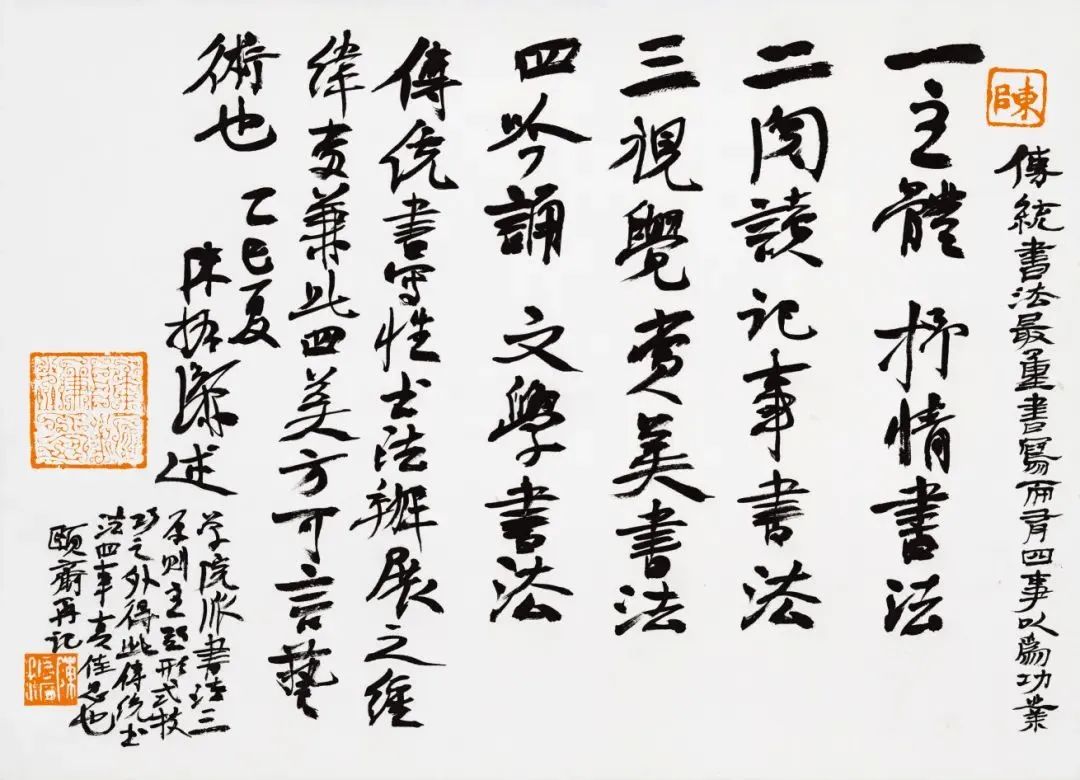 陳
傳統書法最重書寫而有四事以為功業
一主體 抒情書法
二閱讀 記事書法
三視覺 賞美書法
四吟誦 文學書法
傳統書寫性書法辦展之經
緯交兼此四美方可言藝
術也 乙巳夏
陳振濂述
学院派書法三
原则主題形式技
巧之外得此傳统书
法四事亦佳思也
頤齋再記